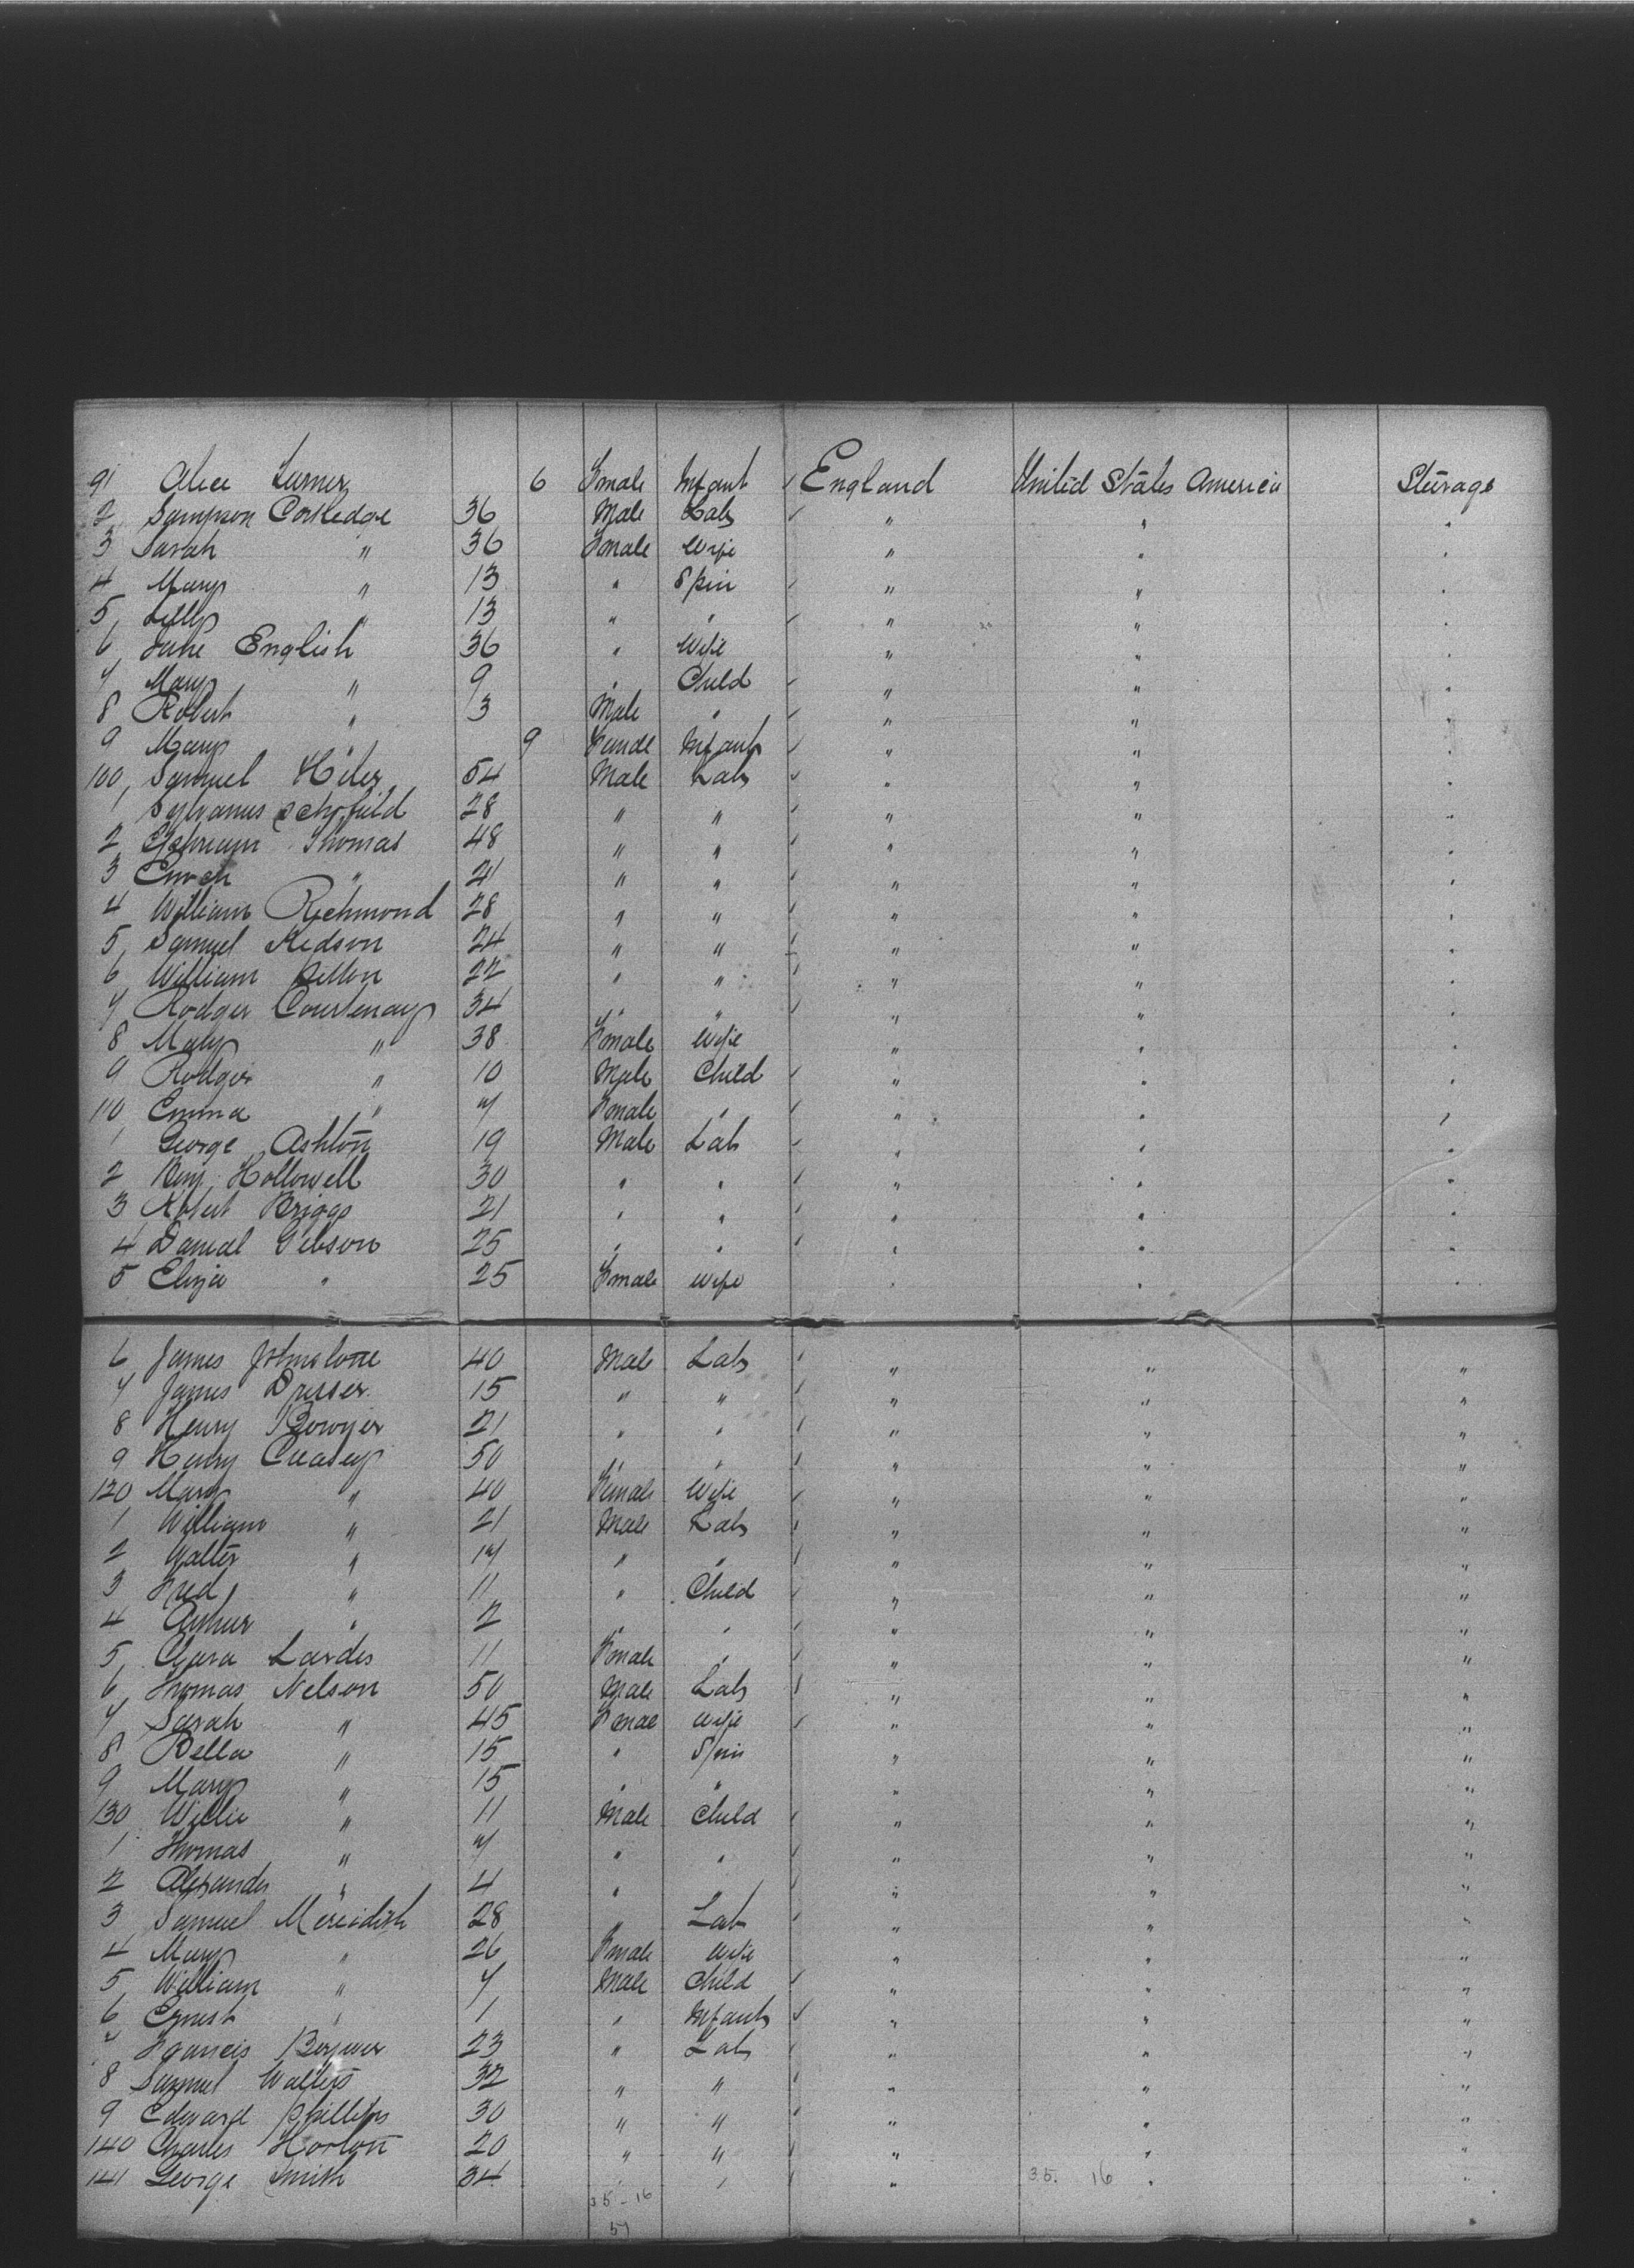 91 Alice Turner 6 Female Infant England United States America Steerage
2 Sampson 36 Male Lab " " "
3 Sarah " 36 Female Wife " " "
4 Mary " 13 " Spin " " "
5 Lilly " 13 " " " " "
6 Jane English 36 " Wife " " "
7 Mary " 9 " Child " " "
8 Robert " 3 Male " " " "
9 Mary " 9 Female Infant " " "
100 Samuel Hiles 54 Male Lab " " "
1 Sylvanus Schofield 28 " " " " "
2 Ephriam Thomas 48 " " " " "
3 Enoch " 21 " " " " "
4 William Richmond 28 " " " " "
5 Samuel Kidson 24 " " " " "
6 William 22 " " " " "
7 Rodger Courtenay 34 " " " " "
8 Mary " 38 Female Wife " " "
9 Rodger " 10 Male Child " " "
110 Emma " 7 Female " " " "
1 George Ashton 19 Male Lab " " "
2 Benj Hollowell 30 " " " " "
3 Robert Briggs 21 " " " " "
4 Daniel Gibson 25 " " " " "
5 Eliza " 25 Female Wife " "
6 James Johnstone 40 Male Lab " " "
7 James Dresser 15 " " " " "
8 Henry Bowyer 21 " " " " "
9 Henry Creasey 50 " " " " "
120 Mary " 40 Female Wife " " "
1 William " 21 Male Lab " " "
2 Walter " 17 " " " " "
3 Fred " 11 " Child " " "
4 Arthur " 2 " " " " "
5 Clara Lardes 11 Female " " " "
6 Thomas Nelson 50 Male Lab " " "
7 Sarah " 45 Female Wife " " "
8 Bella " 15 " Spin " " "
9 Mary " 15 " " " " "
130 Willie " 11 Male Child " " "
1 Thomas " 7 " " " " "
2 Alexander " 4 " " " " "
3 Samuel Meredith 28 " Lab " " "
4 Mary " 26 Female Wife " " "
5 William " 7 Male Child " " "
6 Ernest " 1 " Infant " " "
7 Francis 23 " Lab " " "
8 Samuel Walters 32 " " " " "
9 Edward Phillips 30 " " " " "
140 Charles Horton 20 " " " " "
141 George Smith 34 " " " 35. 16 " "
35-16
51